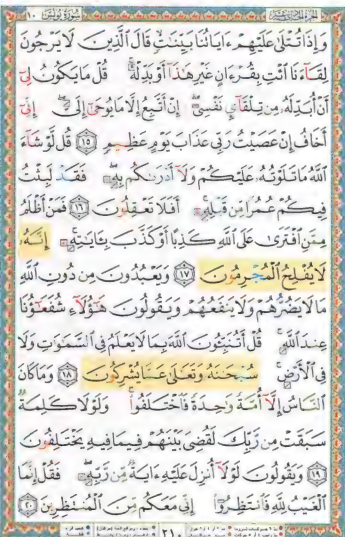 سورة يونس ١٠ الجزء الحادي عشر
وَإِذَا تُتْلَىٰ عَلَيْهِمْ ءَايَاتُنَا بَيِّنَٰتٍ قَالَ ٱلَّذِينَ لَا يَرْجُونَ
لِقَآءَنَا ٱئْتِ بِقُرْءَانٍ غَيْرِ هَٰذَآ أَوْ بَدِّلْهُ قُلْ مَا يَكُونُ لِىٓ
أَنْ أُبَدِّلَهُۥ مِن تِلْقَآئِ نَفْسِىٓ إِنْ أَتَّبِعُ إِلَّا مَا يُوحَىٰٓ إِلَىَّ إِنِّىٓ
أَخَافُ إِنْ عَصَيْتُ رَبِّى عَذَابَ يَوْمٍ عَظِيمٍ ١٥ قُل لَّوْ شَآءَ
ٱللَّهُ مَا تَلَوْتُهُۥ عَلَيْكُمْ وَلَآ أَدْرَىٰكُم بِهِۦ فَقَدْ لَبِثْتُ
فِيكُمْ عُمُرًا مِّن قَبْلِهِۦٓ أَفَلَا تَعْقِلُونَ ١٦ فَمَنْ أَظْلَمُ
مِمَّنِ ٱفْتَرَىٰ عَلَى ٱللَّهِ كَذِبًا أَوْ كَذَّبَ بِـَٔايَٰتِهِۦٓ إِنَّهُۥ
لَا يُفْلِحُ ٱلْمُجْرِمُونَ ١٧ وَيَعْبُدُونَ مِن دُونِ ٱللَّهِ
مَا لَا يَضُرُّهُمْ وَلَا يَنفَعُهُمْ وَيَقُولُونَ هَٰٓؤُلَآءِ شُفَعَٰٓؤُنَا
عِندَ ٱللَّهِ قُلْ أَتُنَبِّـُٔونَ ٱللَّهَ بِمَا لَا يَعْلَمُ فِى ٱلسَّمَٰوَٰتِ وَلَا
فِى ٱلْأَرْضِ سُبْحَٰنَهُۥ وَتَعَٰلَىٰ عَمَّا يُشْرِكُونَ ١٨ وَمَا كَانَ
ٱلنَّاسُ إِلَّآ أُمَّةً وَٰحِدَةً فَٱخْتَلَفُوا۟ وَلَوْلَا كَلِمَةٌ
سَبَقَتْ مِن رَّبِّكَ لَقُضِىَ بَيْنَهُمْ فِيمَا فِيهِ يَخْتَلِفُونَ
١٩ وَيَقُولُونَ لَوْلَآ أُنزِلَ عَلَيْهِ ءَايَةٌ مِّن رَّبِّهِۦ فَقُلْ إِنَّمَا
ٱلْغَيْبُ لِلَّهِ فَٱنتَظِرُوٓا۟ إِنِّى مَعَكُم مِّنَ ٱلْمُنتَظِرِينَ ٢٠
٢١٠